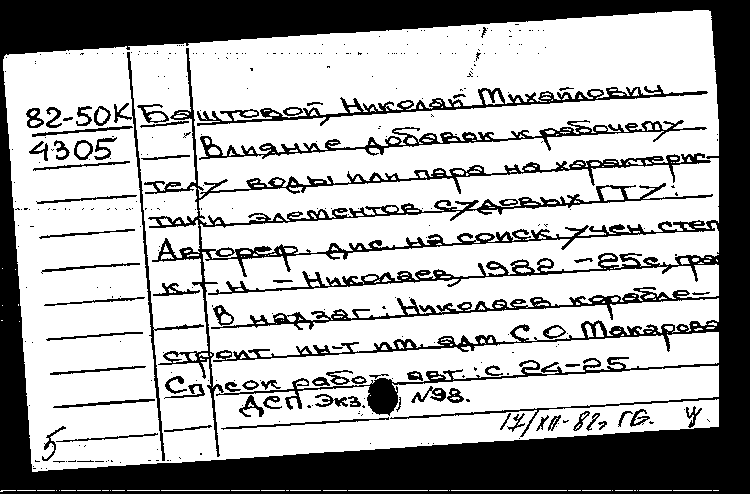 82-50К Баштовой, Николай Михайлович.
4305 Влияние добавок к рабочему
телу воды или пара на характерис-
тики элементов судовых ГТУ:
Автореф. дис. на соиск. учен. степ
к.т.н. – Николаев, 1982 – 25с., гра
В надзаг.: Николаев. корабле-
строит. ин-т им. адм. С.О. Макарова
Список работ авт.: с. 24-25.
ДСП. Экз. №98.
17/XII-82г ГБ.
5